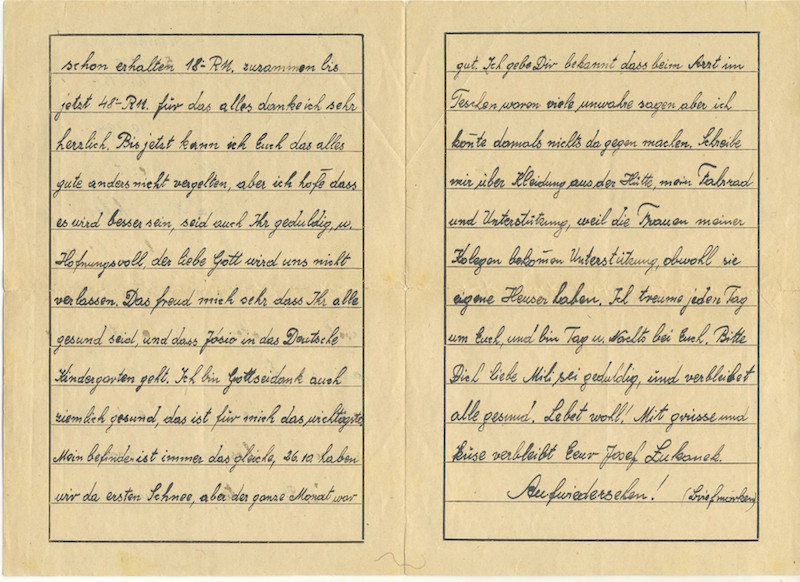 schon erhalten 18- RM. zusammen bis
jetzt 48- RM. für das alles danke ich sehr
herzlich. Bis jetzt kann ich Euch das alles
gute anders nicht vergelten, aber ich hofe dass
es wird besser sein, seid auch Ihr geduldig, u.
Hofnungsvoll, der liebe Gott wird uns nicht
verlassen. Das freud mich sehr dass Ihr alle
gesund seid, und dass Josio in das Deutsche
Kindergarten geht. Ich bin Gottseidank auch
ziemlich gesund, das ist für mich das wichtigste
Mein befinden ist immer das gleiche, 26. 10 haben
wir da ersten Schnee, aber der ganze Monat war
gut. Ich gebe Dir bekannt dass beim Arzt im
Teschen waren viele unwahre sagen, aber ich
konte damals nichts da gegen machen. Schreibe
mir über Kleidung aus der Hütte, mein Fahrrad
und Unterstützung, weil die Frauen meiner
Kolegen bekomen Unterstützung, obwohl sie
eigene Heuser haben. Ich treume jeden Tag
um Euch, und bin Tag u. Nachts bei Euch. Bitte
Dich liebe Mili sei geduldig, und verbleibet
alle gesund. Lebet wohl! Mit grüsse und
küse verbleibt Euer Josef Lukanek.
Aufwiedersehen! (Briefmarken)